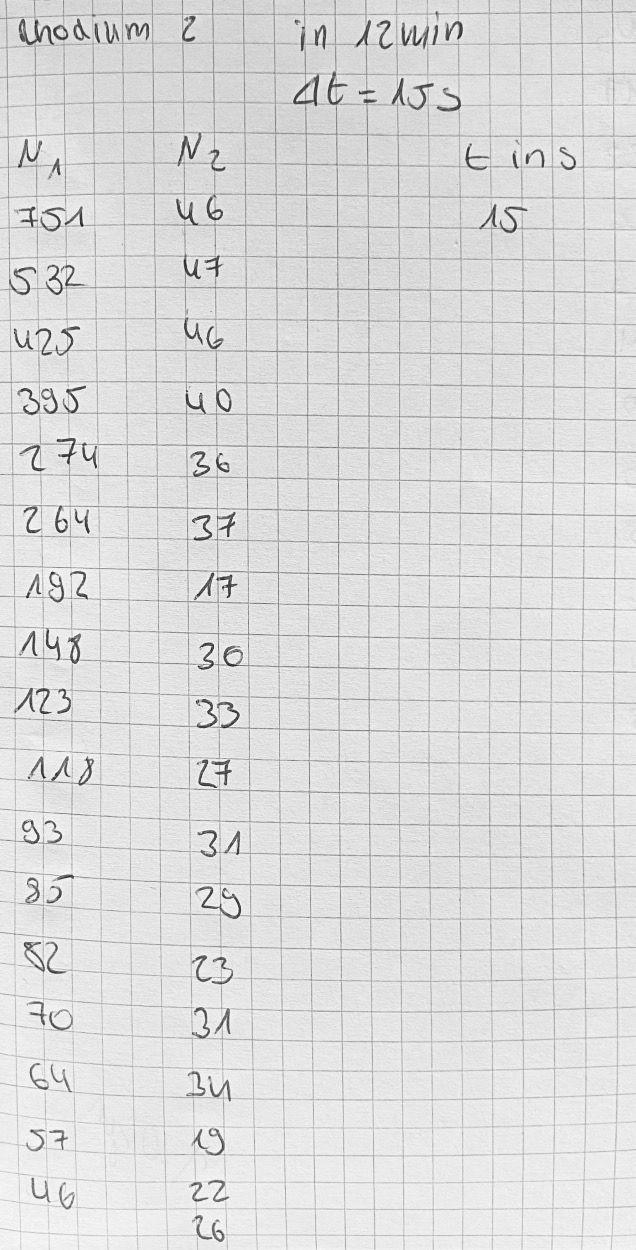 Rhodium 2 in 12min
Δt = 15s
N1 N2 t in s
751 46 15
532 47
425 46
395 40
274 36
264 37
192 17
148 30
123 33
118 27
93 31
85 29
82 23
70 31
64 34
57 19
46 22
26